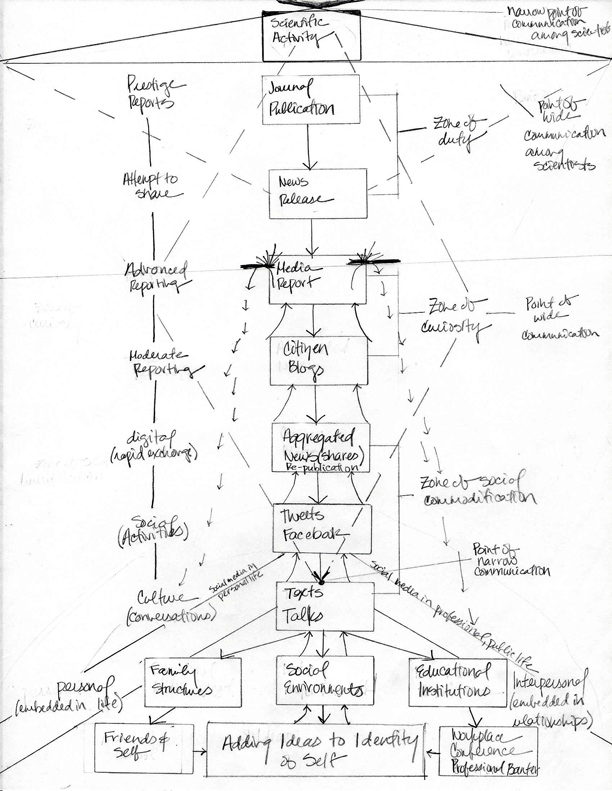 Narrow point of
communication
among scientists
Scientific
Activity
Prestige
Reports
Journal
Publication
Zone of
duty
Point of
wide
communication
among
scientists
Attempt to
share
News
Release
Advanced
Reporting
Media
Report
Zone of
curiosity
Point of
wide
communication
Moderate
Reporting
Citizen
Blogs
digital
(rapid exchange)
Aggregated
News (shares)
Re-publication
Zone of social
commodification
Social
(Activities)
Tweets
Facebook
Point of
narrow
communication
Social media in
personal life
Social media in professional, public life
Culture
(conversations)
Texts
Talks
personal
(embedded in life)
Family
Structures
Social
Environments
Educational
Institutions
Interpersonal
(embedded in
relationships)
Friends &
Self
Adding Ideas to Identity
of Self
Workplace
Conference
Professional Banter